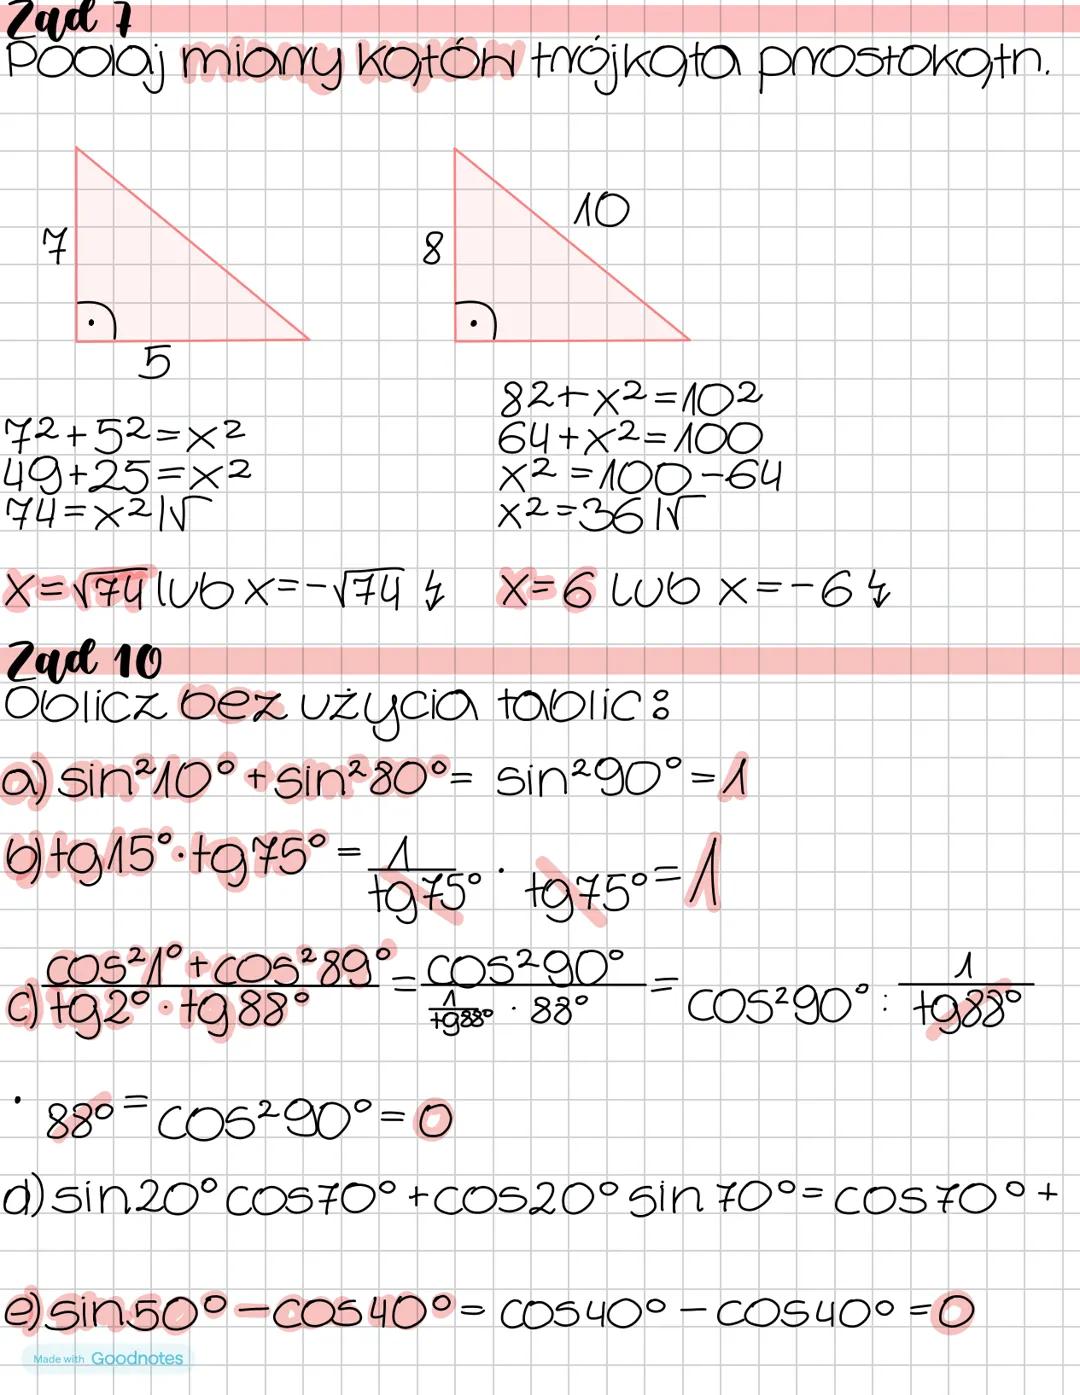 Zad 7
Podaj miary kątów trójkąta prostokątn.
7
5
8
10
7²+5²=x²
49+25=x²
74=x²|√
x=√74 lub x=-√74 ↯
82+x²=10²
64+x²=100
x²=100-64
x²=36|√
x=6 lub x=-6 ↯
Zad 10
Oblicz bez użycia tablic:
a) sin²10°+sin²80°= sin²90°=1
b) tg15°·tg75°= 1/tg75° · tg75°=1
c) (cos²1°+cos²89°)/(tg2°·tg88°) = cos²90°/(1/tg88° · 88°) = cos²90° : 1/tg88°
· 88°=cos²90°=0
d) sin20°cos70°+cos20°sin70°=cos70°+
e) sin50°-cos40°= cos40°-cos40°=0
Made with Goodnotes